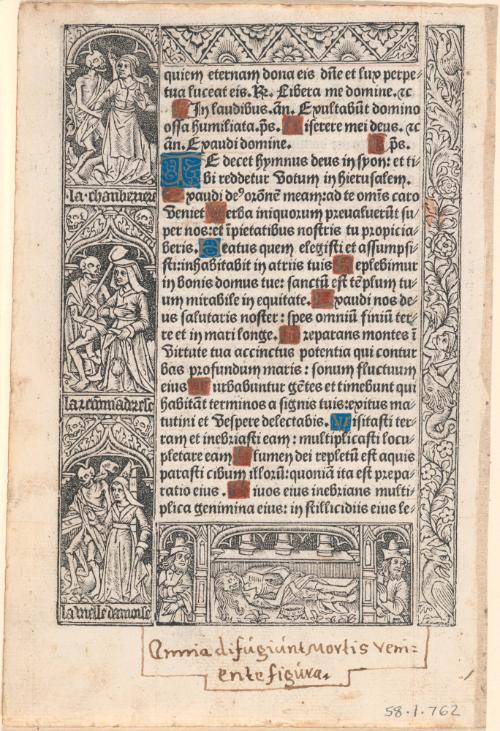 quiem eternam dona eis dn̄e et lux perpe⸗
tua luceat eis. R̃. Libera me domine. ⁊c
In laudibus. an̄. Exultabūt domino
ossa humiliata. p̄s. Miserere mei deus. ⁊c
an̄. Exaudi domine. p̄s.
TE decet hymnus deus in syon: et ti⸗
bi reddetur votum in hierusalem.
Exaudi de⁹ orōnē meam: ad te omīs caro
veniet Verba iniquorum preualuerūt su⸗
per nos: et īpietatibus nostris tu propicia⸗
beris. Beatus quem elegisti et assumpsi⸗
sti: inhabitabit in atriis tuis Replebimur
in bonis domus tue: sanctū est tēplum tu⸗
um mirabile in equitate. Exaudi nos de⸗
us salutaris noster: spes omniū finiū ter⸗
re et in mari longe. Preparans montes ī
virtute tua accinctus potentia qui contur⸗
bas profundum maris: sonum fluctuum
eius Turbabuntur gētes et timebunt qui
habitāt terminos a signis tuis: exitus ma⸗
tutini et vespere delectabis. Visitasti ter⸗
ram et inebriasti eam: multiplicasti locu⸗
pletare eam Flumen dei repletū est aquis
parasti cibum illorū: quoniā ita est prepa⸗
ratio eius. Riuos eius inebrians multi⸗
plica genimina eius: in stillicidiis eius le⸗
la chanberiere
la recōmāderesse
la vielle damoise
Omnia difúgiúnt Mortis veni⸗
ente figúra.
58.1.762